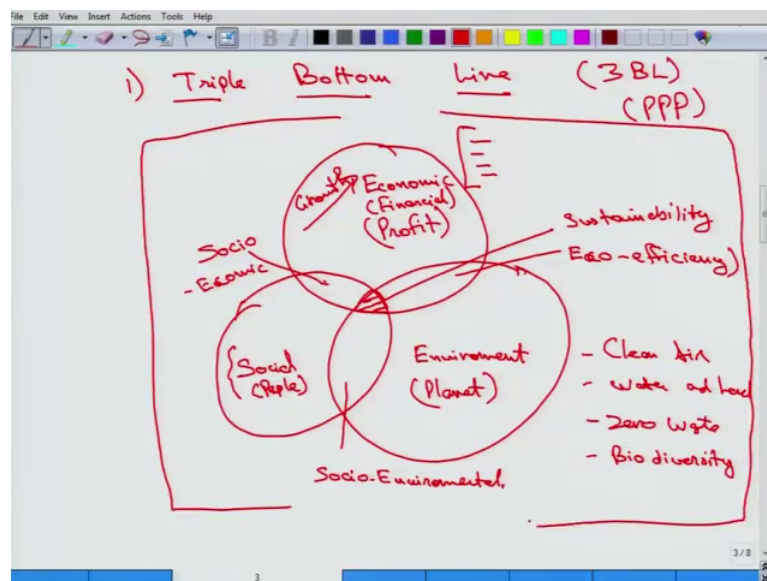 File Edit View Insert Actions Tools Help
1) Triple Bottom Line (3BL)
(PPP)
Growth
Economic
(Financial)
(Profit)
Sustainability
Eco-efficiency)
Socio
- Ecomic
{Social
(Peple)
Enviroment
(Planet)
- Clean Air
- Water and
- Zero Waste
- Bio diversity
Socio-Enviromental.
3/8
3